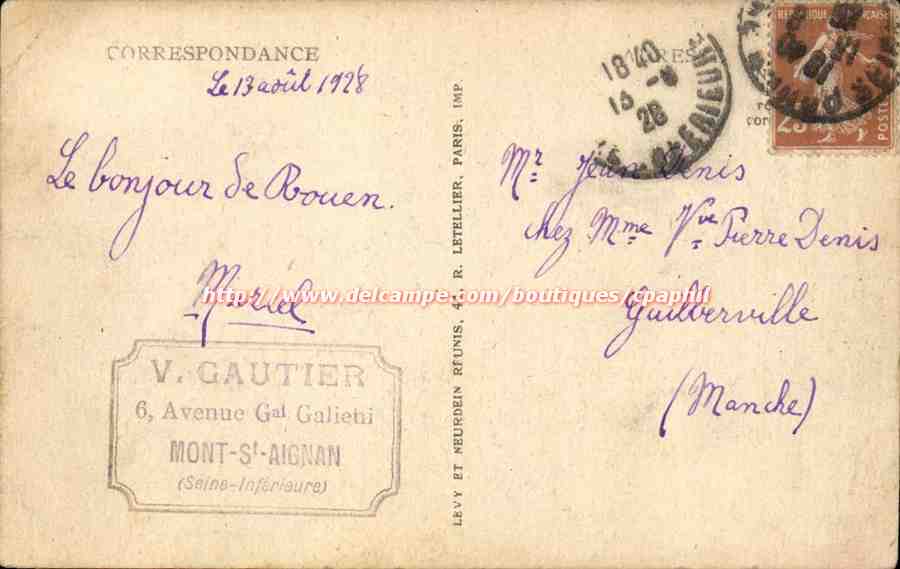 CORRESPONDANCE
Le 13 août 1928
Le bonjour de Rouen.
Muriel
V. GAUTIER
6, Avenue Gal Galieni
MONT-St-AIGNAN
(Seine-Inférieure)
LEVY ET NEURDEIN RÉUNIS, 44, R. LETELLIER, PARIS, IMP.
18 40
13 -8
28
25
POSTES
Mr Jean Denis
chez Mme Vve Pierre Denis
Guilberville
(Manche)
http://www.delcampe.com/boutiques/cpaphil